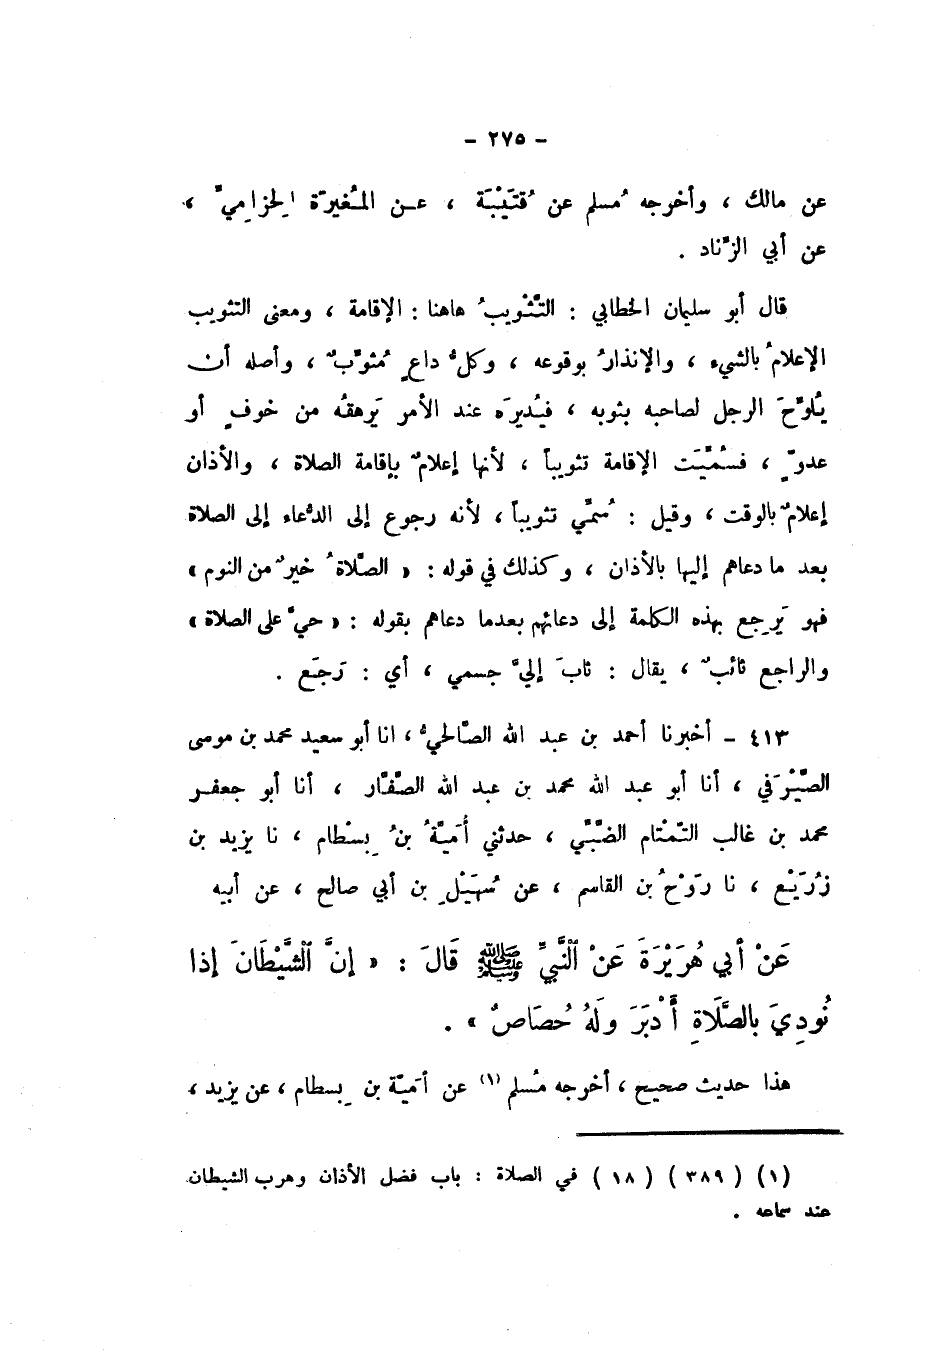 - ٢٧٥ -
عن مالك ، وأخرجه مُسلم عن قُتَيْبَة ، عـن المُغيرَة الحِزامِيِّ ،
عن أبي الزِّناد .
قال أبو سليمان الخطابي : التَّثْويبُ هاهنا : الإقامة ، ومعنى التثويب
الإعلامُ بالشيء ، والإنذارُ بوقوعه ، وكلُّ داعٍ مُثوِّبٌ ، وأصله أن
يُلوِّحَ الرجل لصاحبه بثوبه ، فيُديرَه عند الأمر يَرهقُه من خوفٍ أو
عدوٍّ ، فسُمِّيَت الإقامة تثويباً ، لأنها إعلامٌ بإقامة الصلاة ، والأذان
إعلامٌ بالوقت ، وقيل : سُمِّي تثويباً ، لأنه رجوع إلى الدُّعاء إلى الصلاة
بعد ما دعاهم إليها بالأذان ، وكذلك في قوله : « الصَّلاةُ خيرٌ من النوم »
فهو يَرجِع بهذه الكلمة إلى دعائهم بعدما دعاهم بقوله : « حيَّ على الصلاة »
والراجع ثائبٌ ، يقال : ثابَ إليَّ جسمي ، أي : رَجَع .
٤١٣ - أخبرنا أحمد بن عبد الله الصَّالحيُّ ، انا أبو سعيد محمد بن موسى
الصَّيْرَفي ، أنا أبو عبد الله محمد بن عبد الله الصَّفَّار ، أنا أبو جعفـر
محمد بن غالب التَّمْتام الضَّبِّي ، حدثني أُمَيَّةُ بنُ بِسْطام ، نا يزيد بن
زُرَيْع ، نا رَوْحُ بن القاسم ، عن سُهَيْلِ بن أبي صالح ، عن أبيه
عَنْ أَبي هُرَيْرَةَ عَنْ ٱلنَّبِيِّ ﷺ قَالَ : « إنَّ ٱلشَّيْطَانَ إذا
نُودِيَ بالصَّلَاةِ أَدْبَرَ ولَهُ حُصَاصٌ » .
هذا حديث صحيح ، أخرجه مُسلم (١) عن أُمَيّة بن بِسطام ، عن يزيد ،
(١) ( ٣٨٩ ) ( ١٨ ) في الصلاة : باب فضل الأذان وهرب الشيطان
عند سماعه .